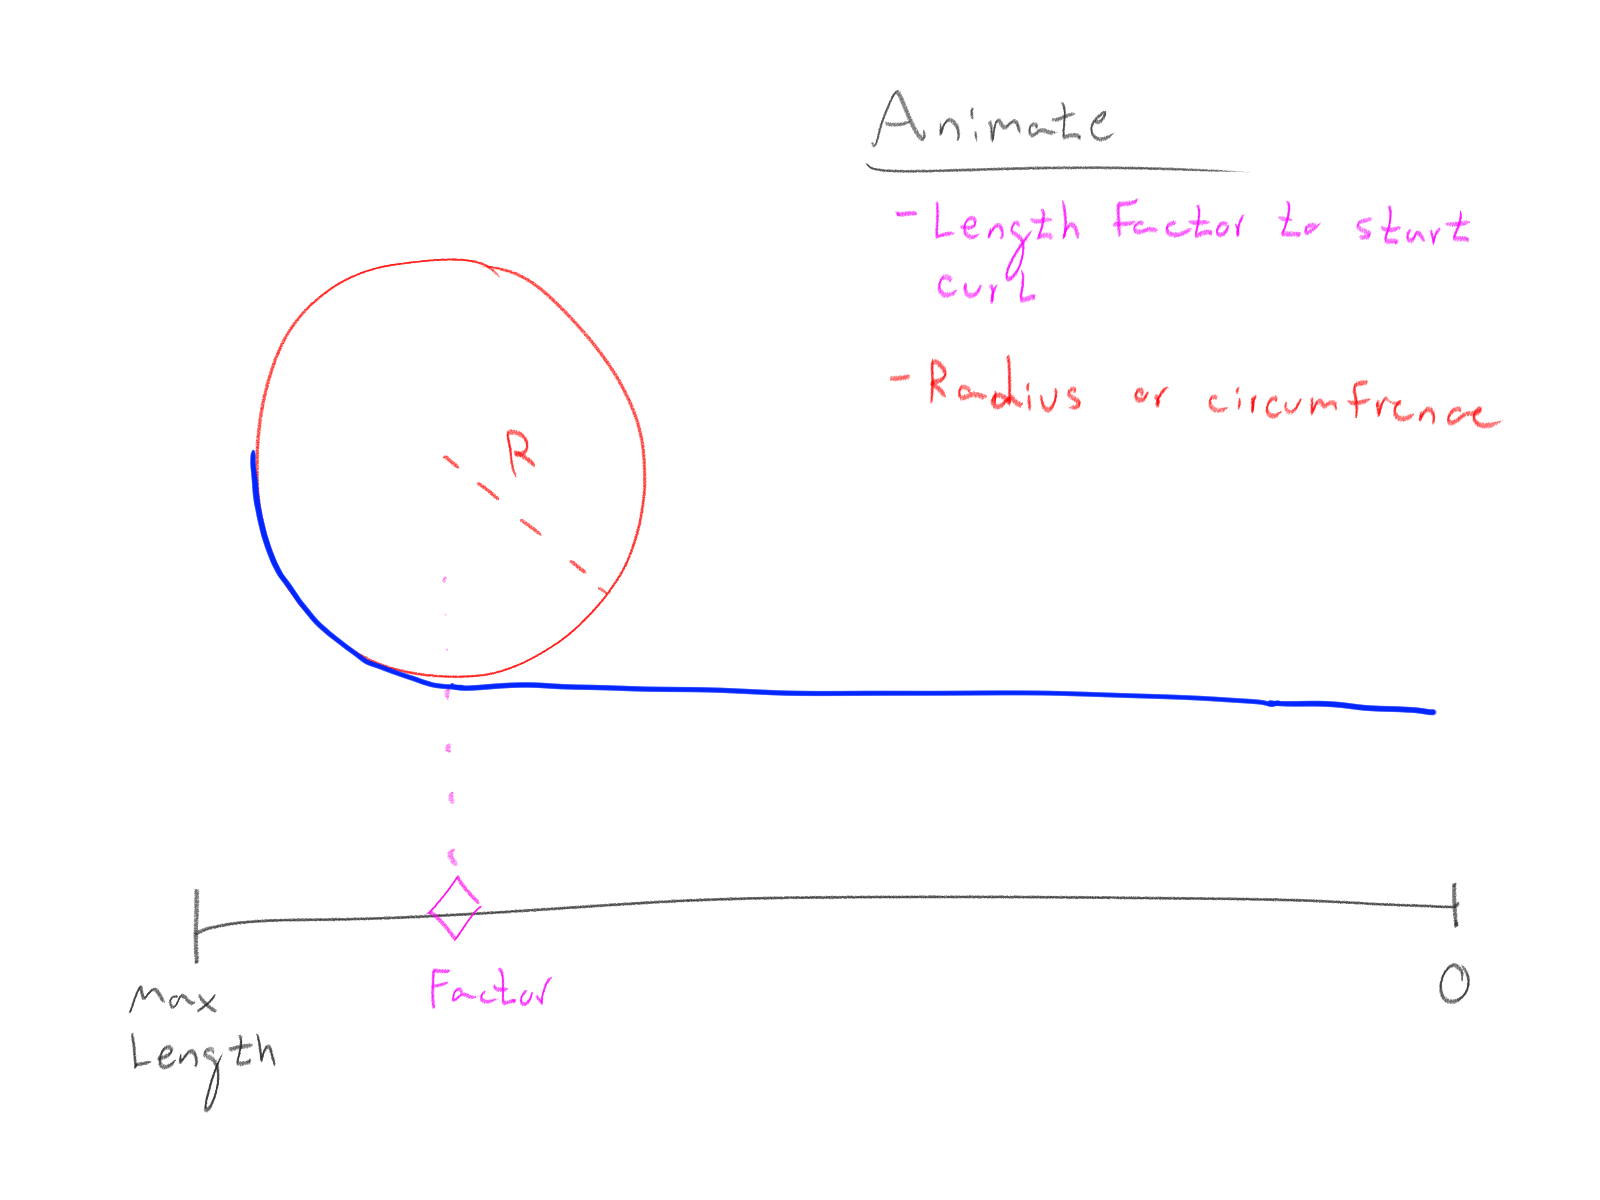 Animate
- Length Factor to start
curl
- Radius or circumfrence
R
Factor
Max
Length
0